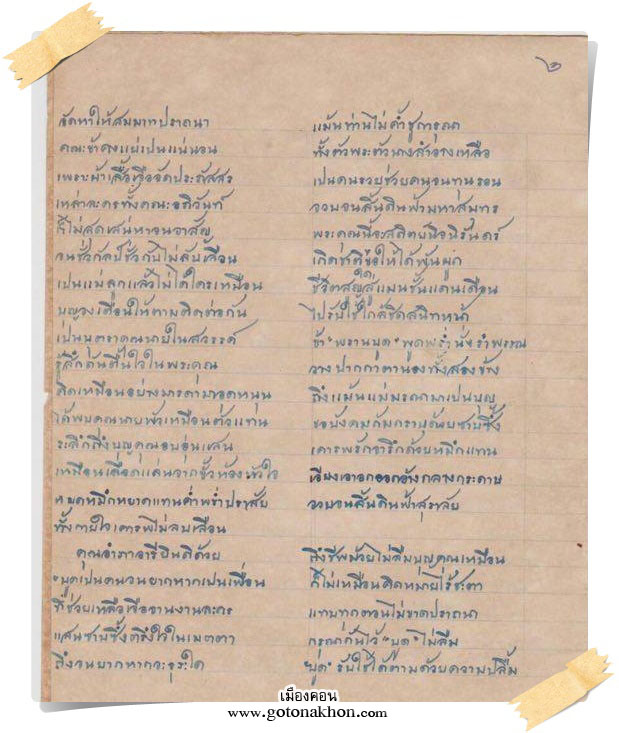 ๖
จัดหาให้สมมาทปรารถนา แม้นท่านไม่ค้ำชูการุณา
คณะข้าคงแย่เป็นแน่นอน ทั้งตัวพระตัวนางสำอางเหลือ
เพราะผ้าเสื้อเจือจัดประภัสสร เป็นคนรวยช่วยคนจนทุนรอน
เหล่าละครทั้งคณะ จวบจนสิ้นดินฟ้ามหาสมุทร
ก็ไม่สุดเสน่หาจน พระคุณนี้จะสถิตย์นิจนิรันดร์
จนชั่วกัลป์ชั่วกัปไม่ลับเลือน เกิดชาติขอให้ได้พันผูก
เป็นแม่ลูกแล้วไม่ได้ใครเหมือน ชีวิตสูญสู่แมนชั้นแดนเดือน
บุญวงเตือนให้ตามติดต่อกัน ไปรับใช้ใกล้ชิดสนิทหน้า
เป็นบุตราคุณนายในสวรรค์ ข้า"พรานบุด"พูดพร่ำนั่งรำพรรณ
รู้สึกตันตื้นใจในพระคุณ วางปากกาตานองทั้งสองข้าง
คิดเหมือนอย่างมารดามาอุดหนุน ถึงแม้นแม่มรณาเป็นบุญ
ได้พบคุณนายพัวเหมือนตัวแทน ขอบังคมก้มกราบด้วยซาบซึ้ง
ระลึกถึงบุญคุณอบอุ่นแสน เคารพรักจารึกด้วยหมึกแทน
เหมือนเลือดแล่นจากขั้วห้องหัวใจ เรียงเอาออกอ้างกลางกระดาษ
หยดหมึกหยาดแทนคำพร่ำปราศัย จวบจนสิ้นดินฟ้าสุราลัย
ทั้งกายใจเคารพไม่ลบเลือน
คุณอำภาอารีปินดีด้วย ถึงชีพม้วยไม่ลืมบุญคุณเหมือน
"บุดเป็นคนจนยากหากเป็นเพื่อน ก็ไม่เหมือนคิดหมายไร้ชะตา
ที่ช่วยเหลือเจือจานงานละคร แทบทุกตอนไม่ขาดปรารถนา
แสนซาบซึ้งตรึงใจในเมตตา กันไว้ "บุด" ไม่ลืม
ถึงจนยากหากจะธุระใด "บุด" รับใช้ได้ตามด้วยความปลื้ม
เมืองคอน
www.gotonakhon.com